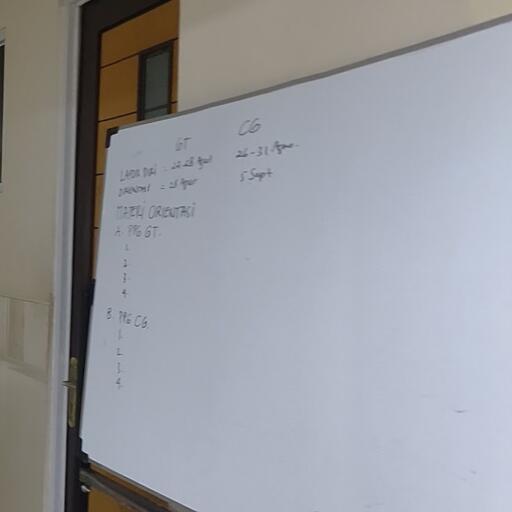 GT CG
LAPOR DIRI = 27-28 Agus 26-31 Agus.
ORIENTASI = 28 Agus 5 Sept
MATERI ORIENTASI
A. PPG GT.
1.
2.
3.
4.
B. PPG CG.
1.
2.
3.
4.